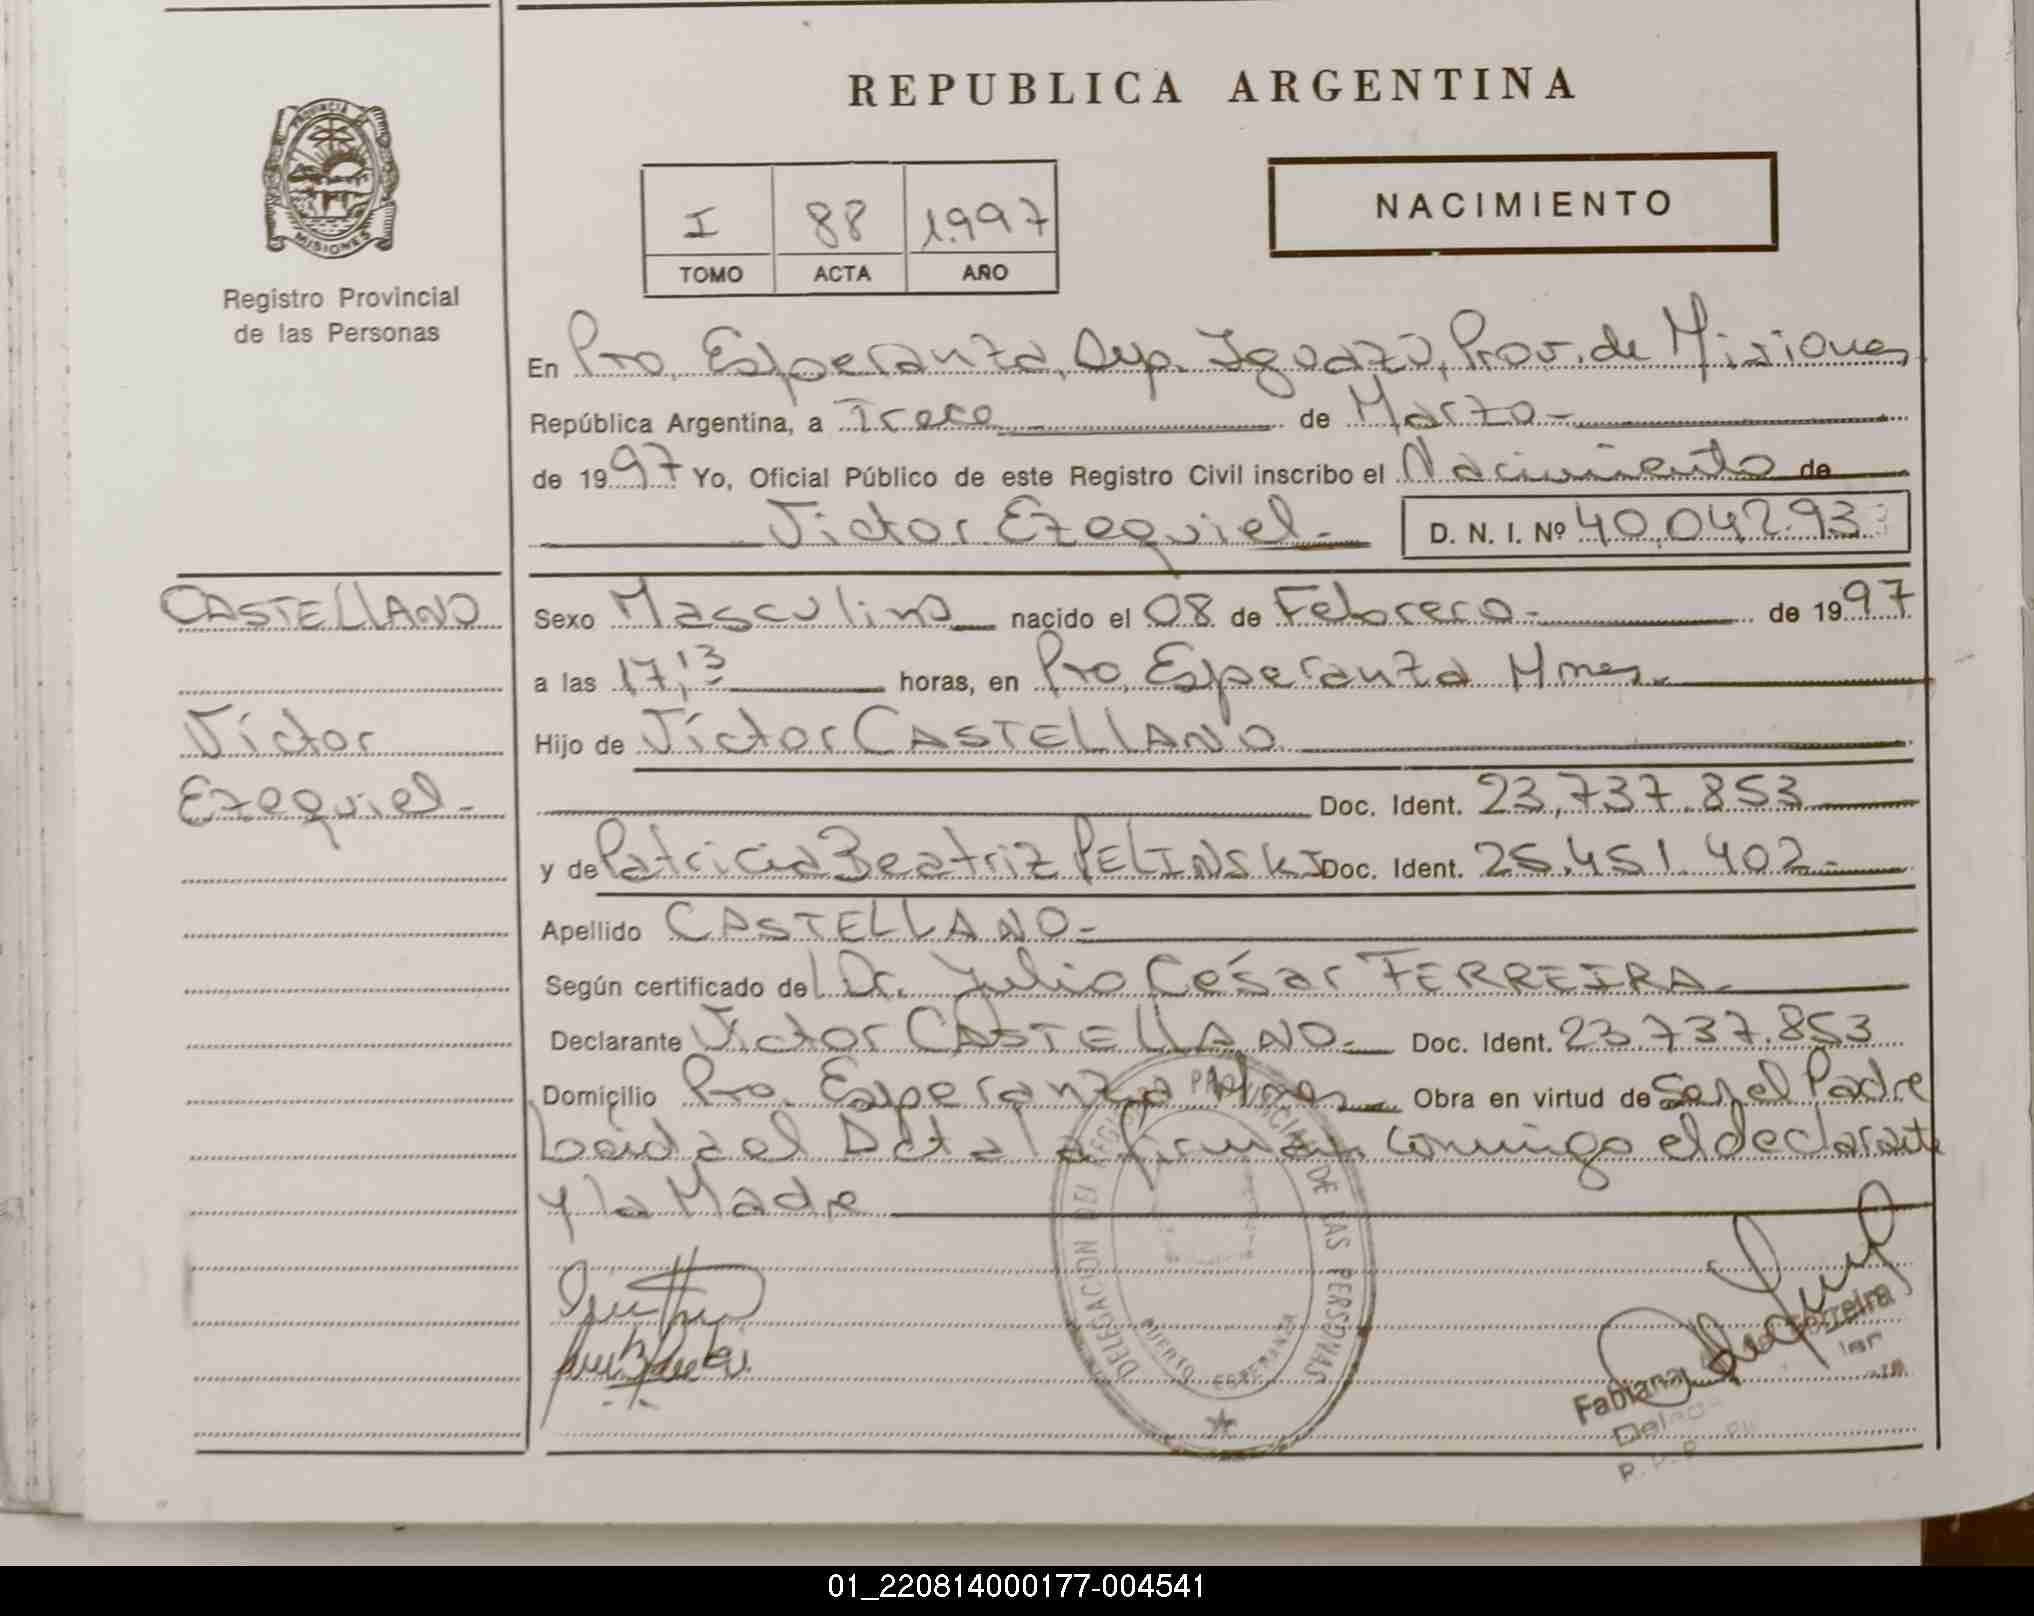 REPUBLICA ARGENTINA
PROVINCIA DE MISIONES
Registro Provincial
de las Personas
I 88 1.997
TOMO ACTA AÑO
NACIMIENTO
En Pto. Esperanza, Dep. Iguazú, Prov. de Misiones
República Argentina, a Trece de Marzo.-
de 1997 Yo, Oficial Público de este Registro Civil inscribo el Nacimiento de
Victor Ezequiel.- D. N. I. Nº 40.042.933
CASTELLANO
Victor
Ezequiel.-
Sexo Masculino nacido el 08 de Febrero.- de 1997
a las 17,13 horas, en Pto. Esperanza Mnes.
Hijo de Víctor CASTELLANO
Doc. Ident. 23.737.853
y de Patricia Beatriz PELINSKI Doc. Ident. 25.451.402.-
Apellido CASTELLANO.-
Según certificado del Dr. Julio César FERREIRA.
Declarante Victor CASTELLANO.- Doc. Ident. 23.737.853
Domicilio Pto. Esperanza Mnes Obra en virtud de Ser el Padre
Leida el Acta la firman conmigo el declarante
y la Madre
DELEGACION DEL REGISTRO PROVINCIAL DE LAS PERSONAS
PUERTO ESPERANZA
Fabiana Ferreira
01_220814000177-004541